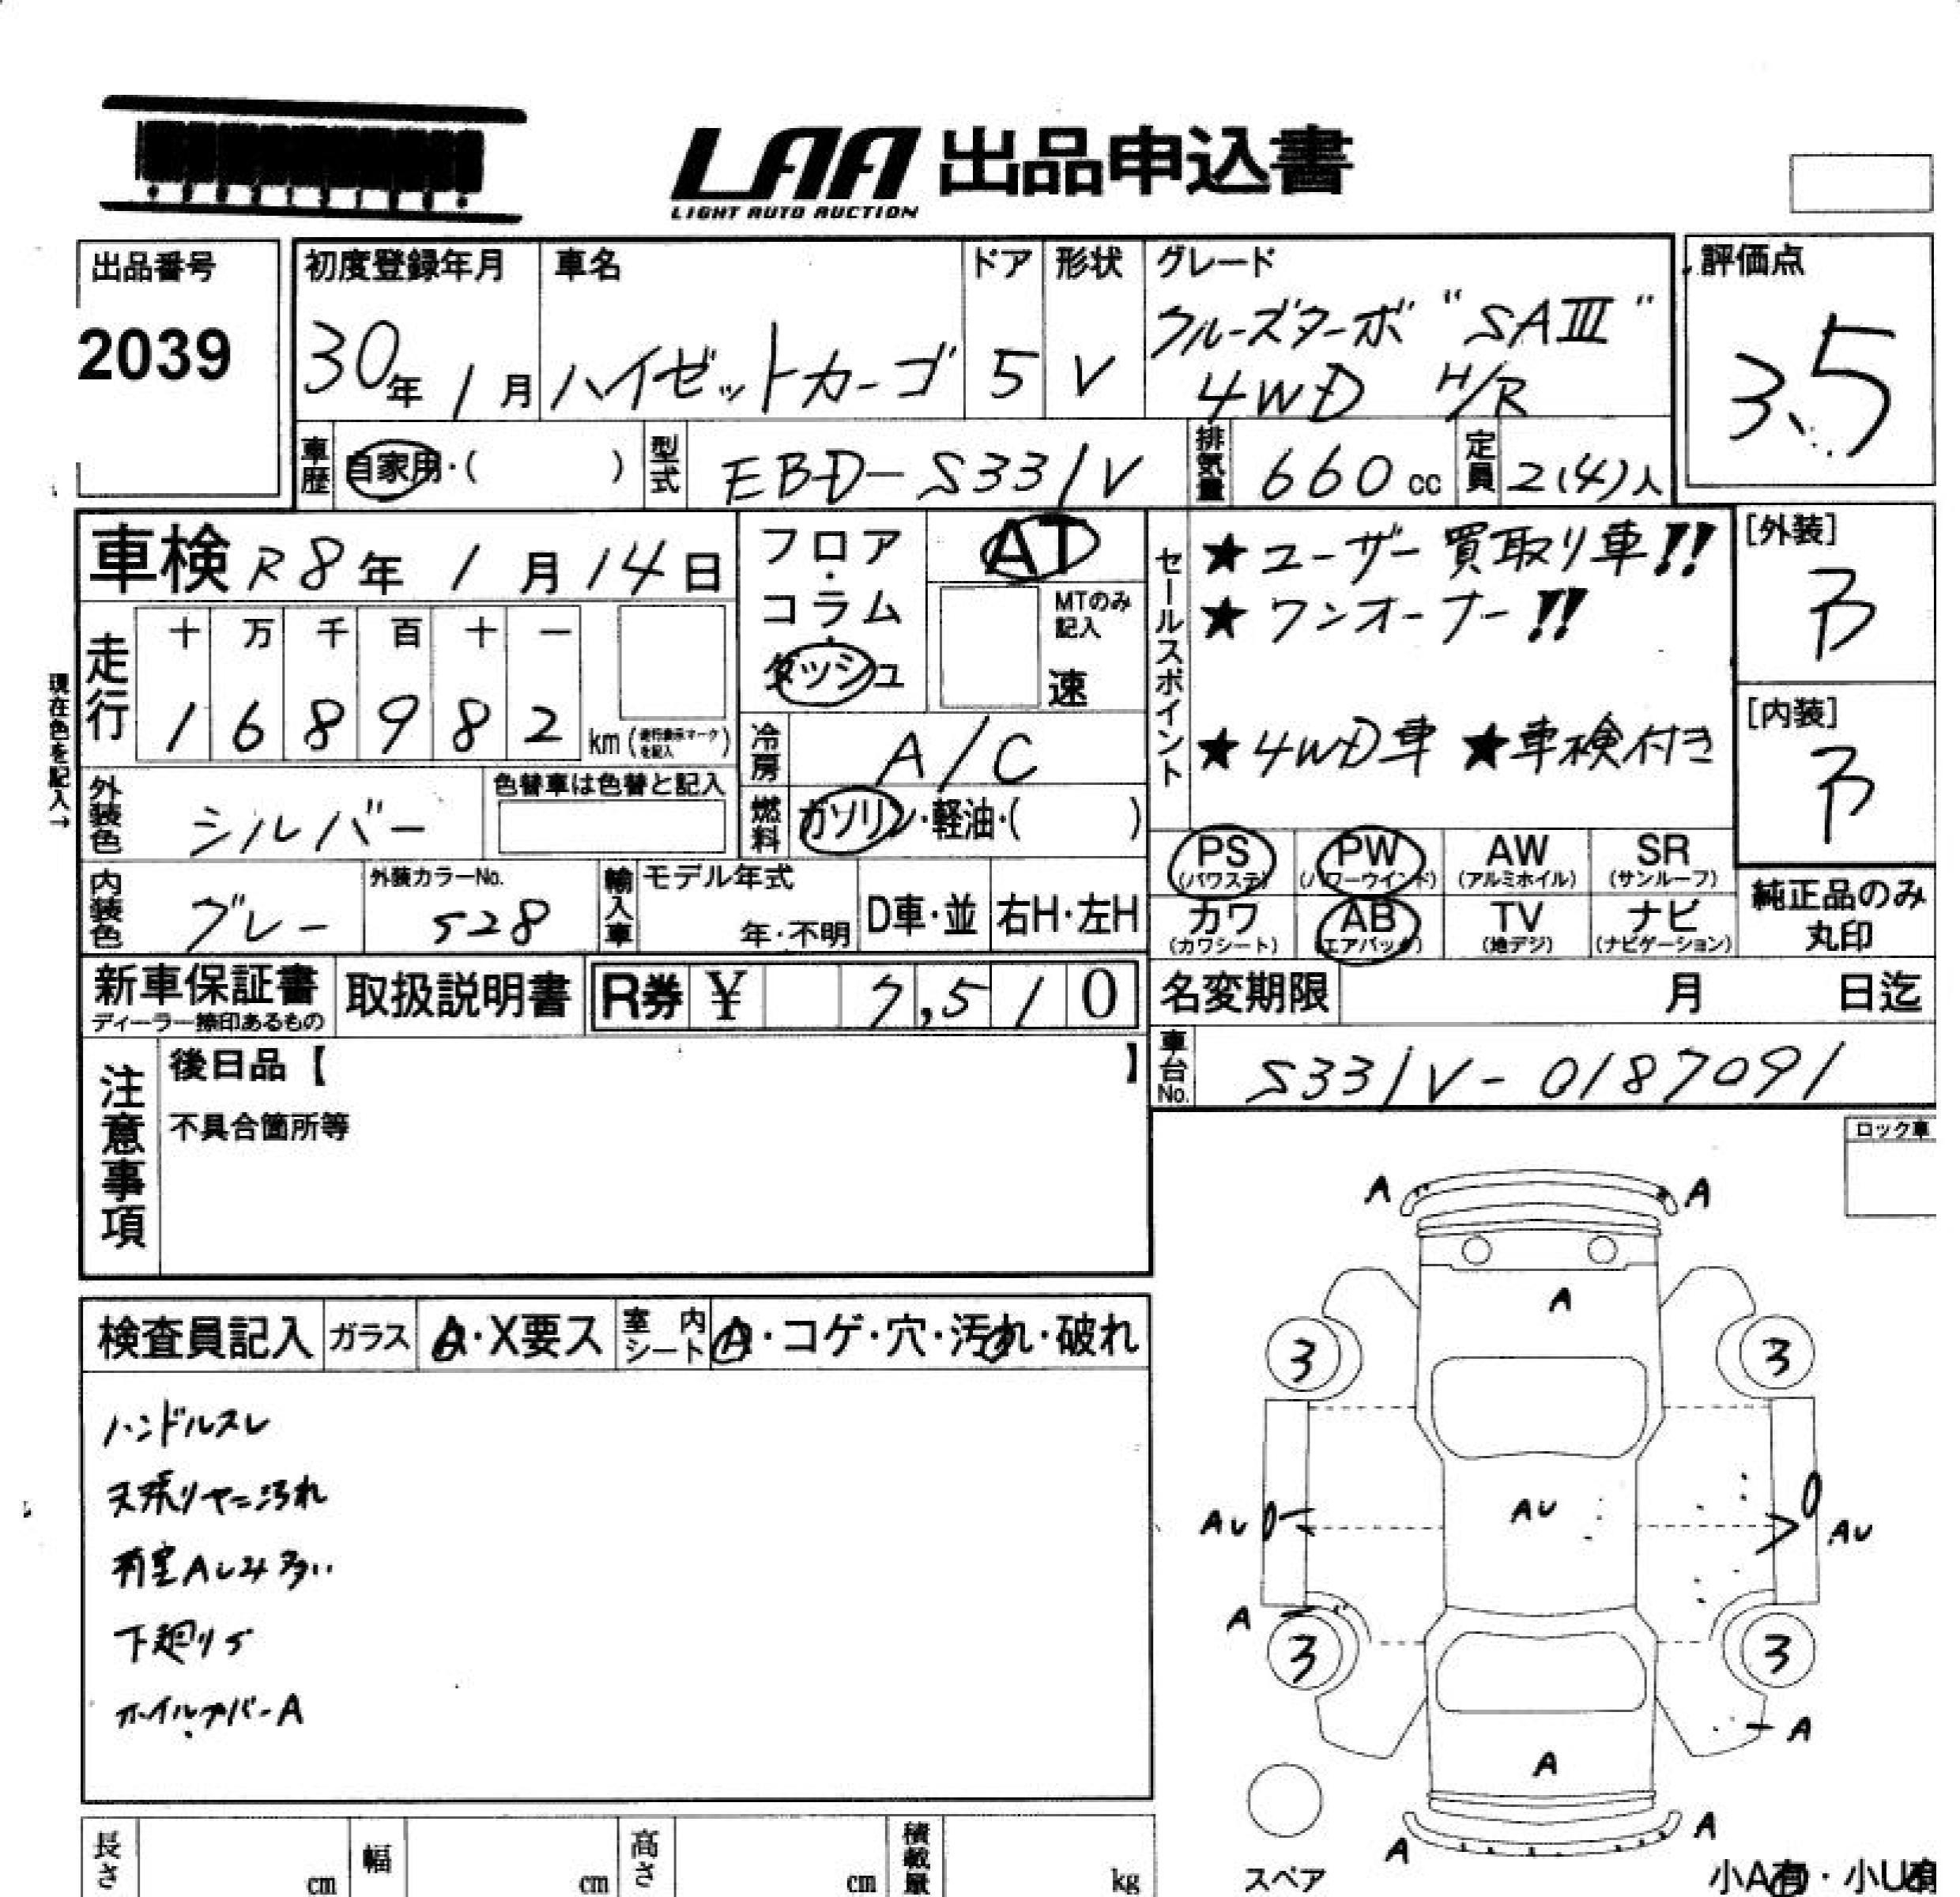 LAA 出品申込書
LIGHT AUTO AUCTION
出品番号
2039
初度登録年月
30年 1月
車名
ハイゼットカーゴ
ドア
5
形状
V
グレード
クルーズターボ "SAⅢ"
4WD H/R
評価点
3.5
車歴
自家用・( )
型式
EBD-S331V
排気量
660cc
定員
2(4)人
車検 R8年 1月14日
フロア・コラム・ダッシュ
AT
MTのみ記入
速
セールスポイント
★ユーザー買取り車!!
★ワンオーナー!!
★4WD車 ★車検付き
[外装]
[内装]
現在色を記入→
走行
十 万 千 百 十 一
1 6 8 9 8 2 km
冷房
A/C
外装色
シルバー
色替車は色替と記入
燃料
ガソリン・軽油・( )
PS (パワステ)
PW (パワーウインド)
AW (アルミホイル)
SR (サンルーフ)
内装色
グレー
外装カラーNo.
S28
輸入車
モデル年式
年・不明
D車・並
右H・左H
カワ (カワシート)
AB (エアバック)
TV (地デジ)
ナビ (ナビゲーション)
純正品のみ
丸印
新車保証書
ディーラー捺印あるもの
取扱説明書
R券 ¥ 7,510
名変期限 月 日迄
注意事項
後日品【 】
不具合箇所等
車台No.
S331V-0187091
ロック車
検査員記入
ガラス
A・X要ス
室内シート
A・コゲ・穴・汚れ・破れ
ハンドルスレ
天張りヤニ汚れ
荷室Aシミ多い
下廻りS
ホイルカバーA
A A
A
3 3
AU AU AU
A
3 3
A
A
A A
スペア
小A有・小U有
長さ cm
幅 cm
高さ cm
積載量 kg